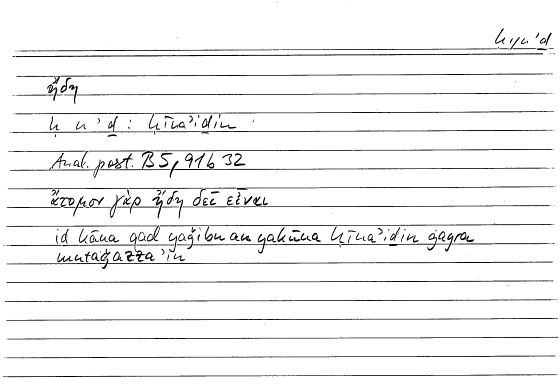 ḥyn ʾḏ
ἤδη
ḥ n ʾ ḏ : ḥīnaʾiḏin
Anal. post. B 5, 91b 32
ἄτομον γὰρ ἤδη δεῖ εἶναι
iḏ kāna qad yaǧibu an yakūna ḥīnaʾiḏin ġayra
mutaǧazzaʾin